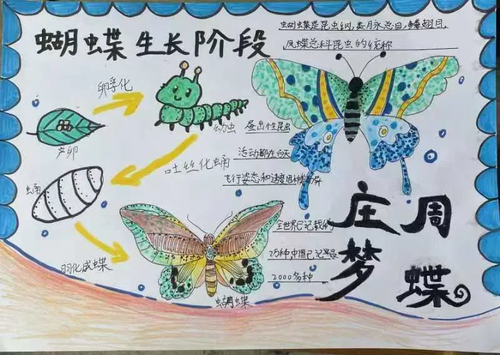 蝴蝶生长阶段
蝴蝶是昆虫纲,类月永总目,鳞翅目,
凤蝶总科昆虫的统称
卵孵化
产卵
幼虫
昼出性昆虫
活动都在白天
吐丝化蛹
蛹
飞行姿态和速度
羽化成蝶
蝴蝶
全世界已记载约
2000多种
庄周
梦蝶